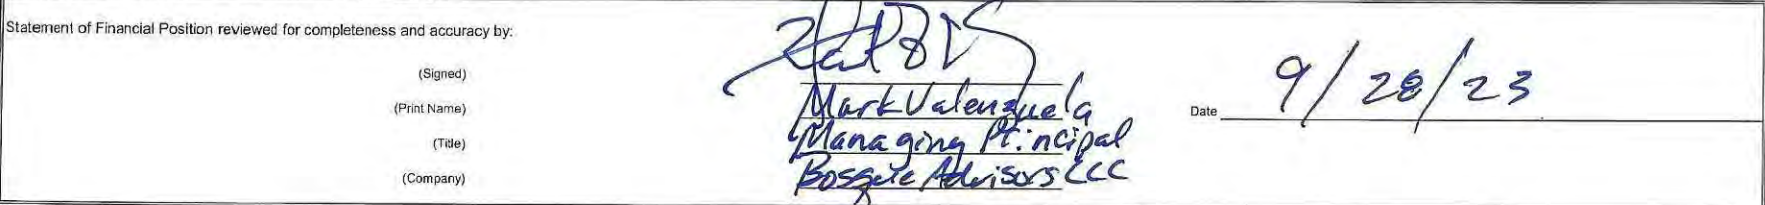 Statement of Financial Position reviewed for completeness and accuracy by:
(Signed)
(Print Name) Mark Valenzuela Date 9/28/23
(Title) Managing Principal
(Company) Advisors LLC